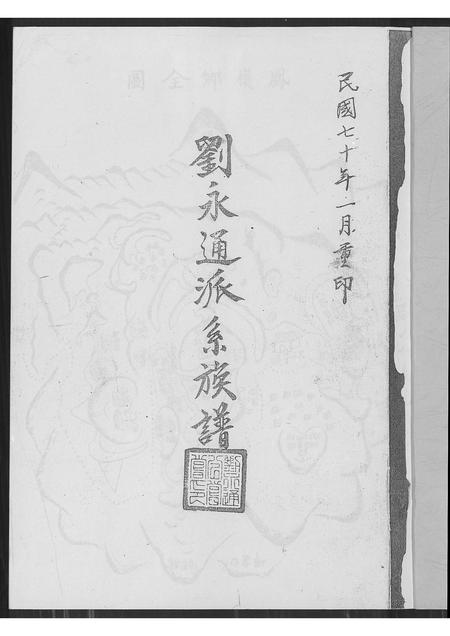 民國七十年一月重印
劉永通派系族譜
圖全鄉
劉永通